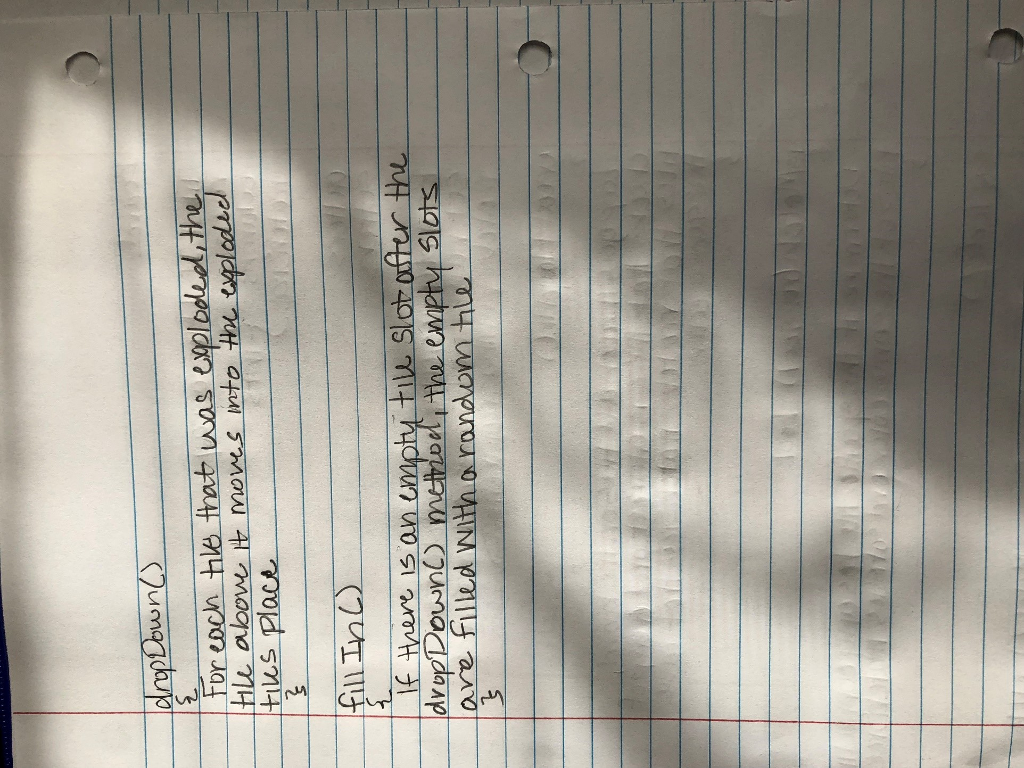 dropDown()
{
For each tile that was exploded, the
tile above it moves into the exploded
tiles place
}
fillIn()
{
If there is an empty tile slot after the
dropDown() method, the empty slots
are filled with a random tile
}